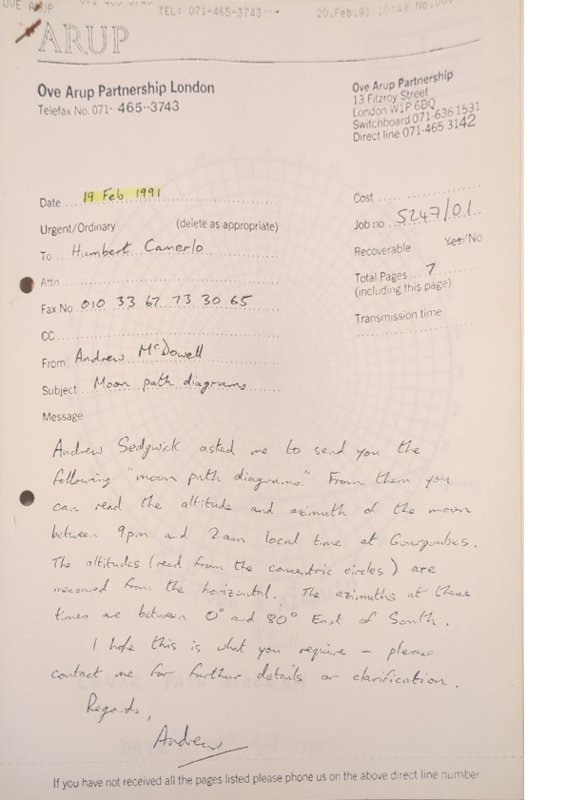 OVE ARUP TEL: 071-465-3743 20.Feb.91 10:49 No.
ARUP
Ove Arup Partnership London
Telefax No. 071- 465--3743
Ove Arup Partnership
13 Fitzroy Street
London W1P 6BQ
Switchboard 071-636 1531
Direct line 071-465 3142
Date 19 Feb 1991
Urgent/Ordinary (delete as appropriate)
To Humbert Camerlo
Attn
Fax No 010 33 67 73 30 65
CC
From Andrew McDowell
Subject Moon path diagrams
Cost
Job no 5247/01
Recoverable Yes/No
Total Pages 7
(including this page)
Transmission time
Message
Andrew Sedgwick asked me to send you the
following "moon path diagrams." From them you
can read the altitude and azimuth of the moon
between 9pm and 2am local time at Gourgoubes.
The altitudes (read from the concentric circles) are
measured from the horizontal. The azimuths at these
times are between 0° and 80° East of South.
I hope this is what you require - please
contact me for further details or clarification.
Regards,
Andrew
If you have not received all the pages listed please phone us on the above direct line number